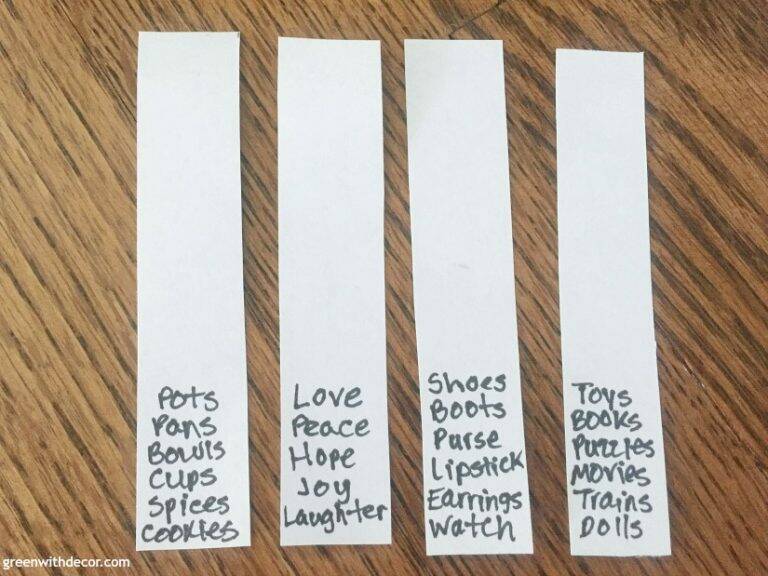 Pots
Pans
Bowls
Cups
Spices
Cookies
Love
Peace
Hope
Joy
Laughter
Shoes
Boots
Purse
Lipstick
Earrings
Watch
Toys
Books
Puzzles
Movies
Trains
Dolls
greenwithdecor.com